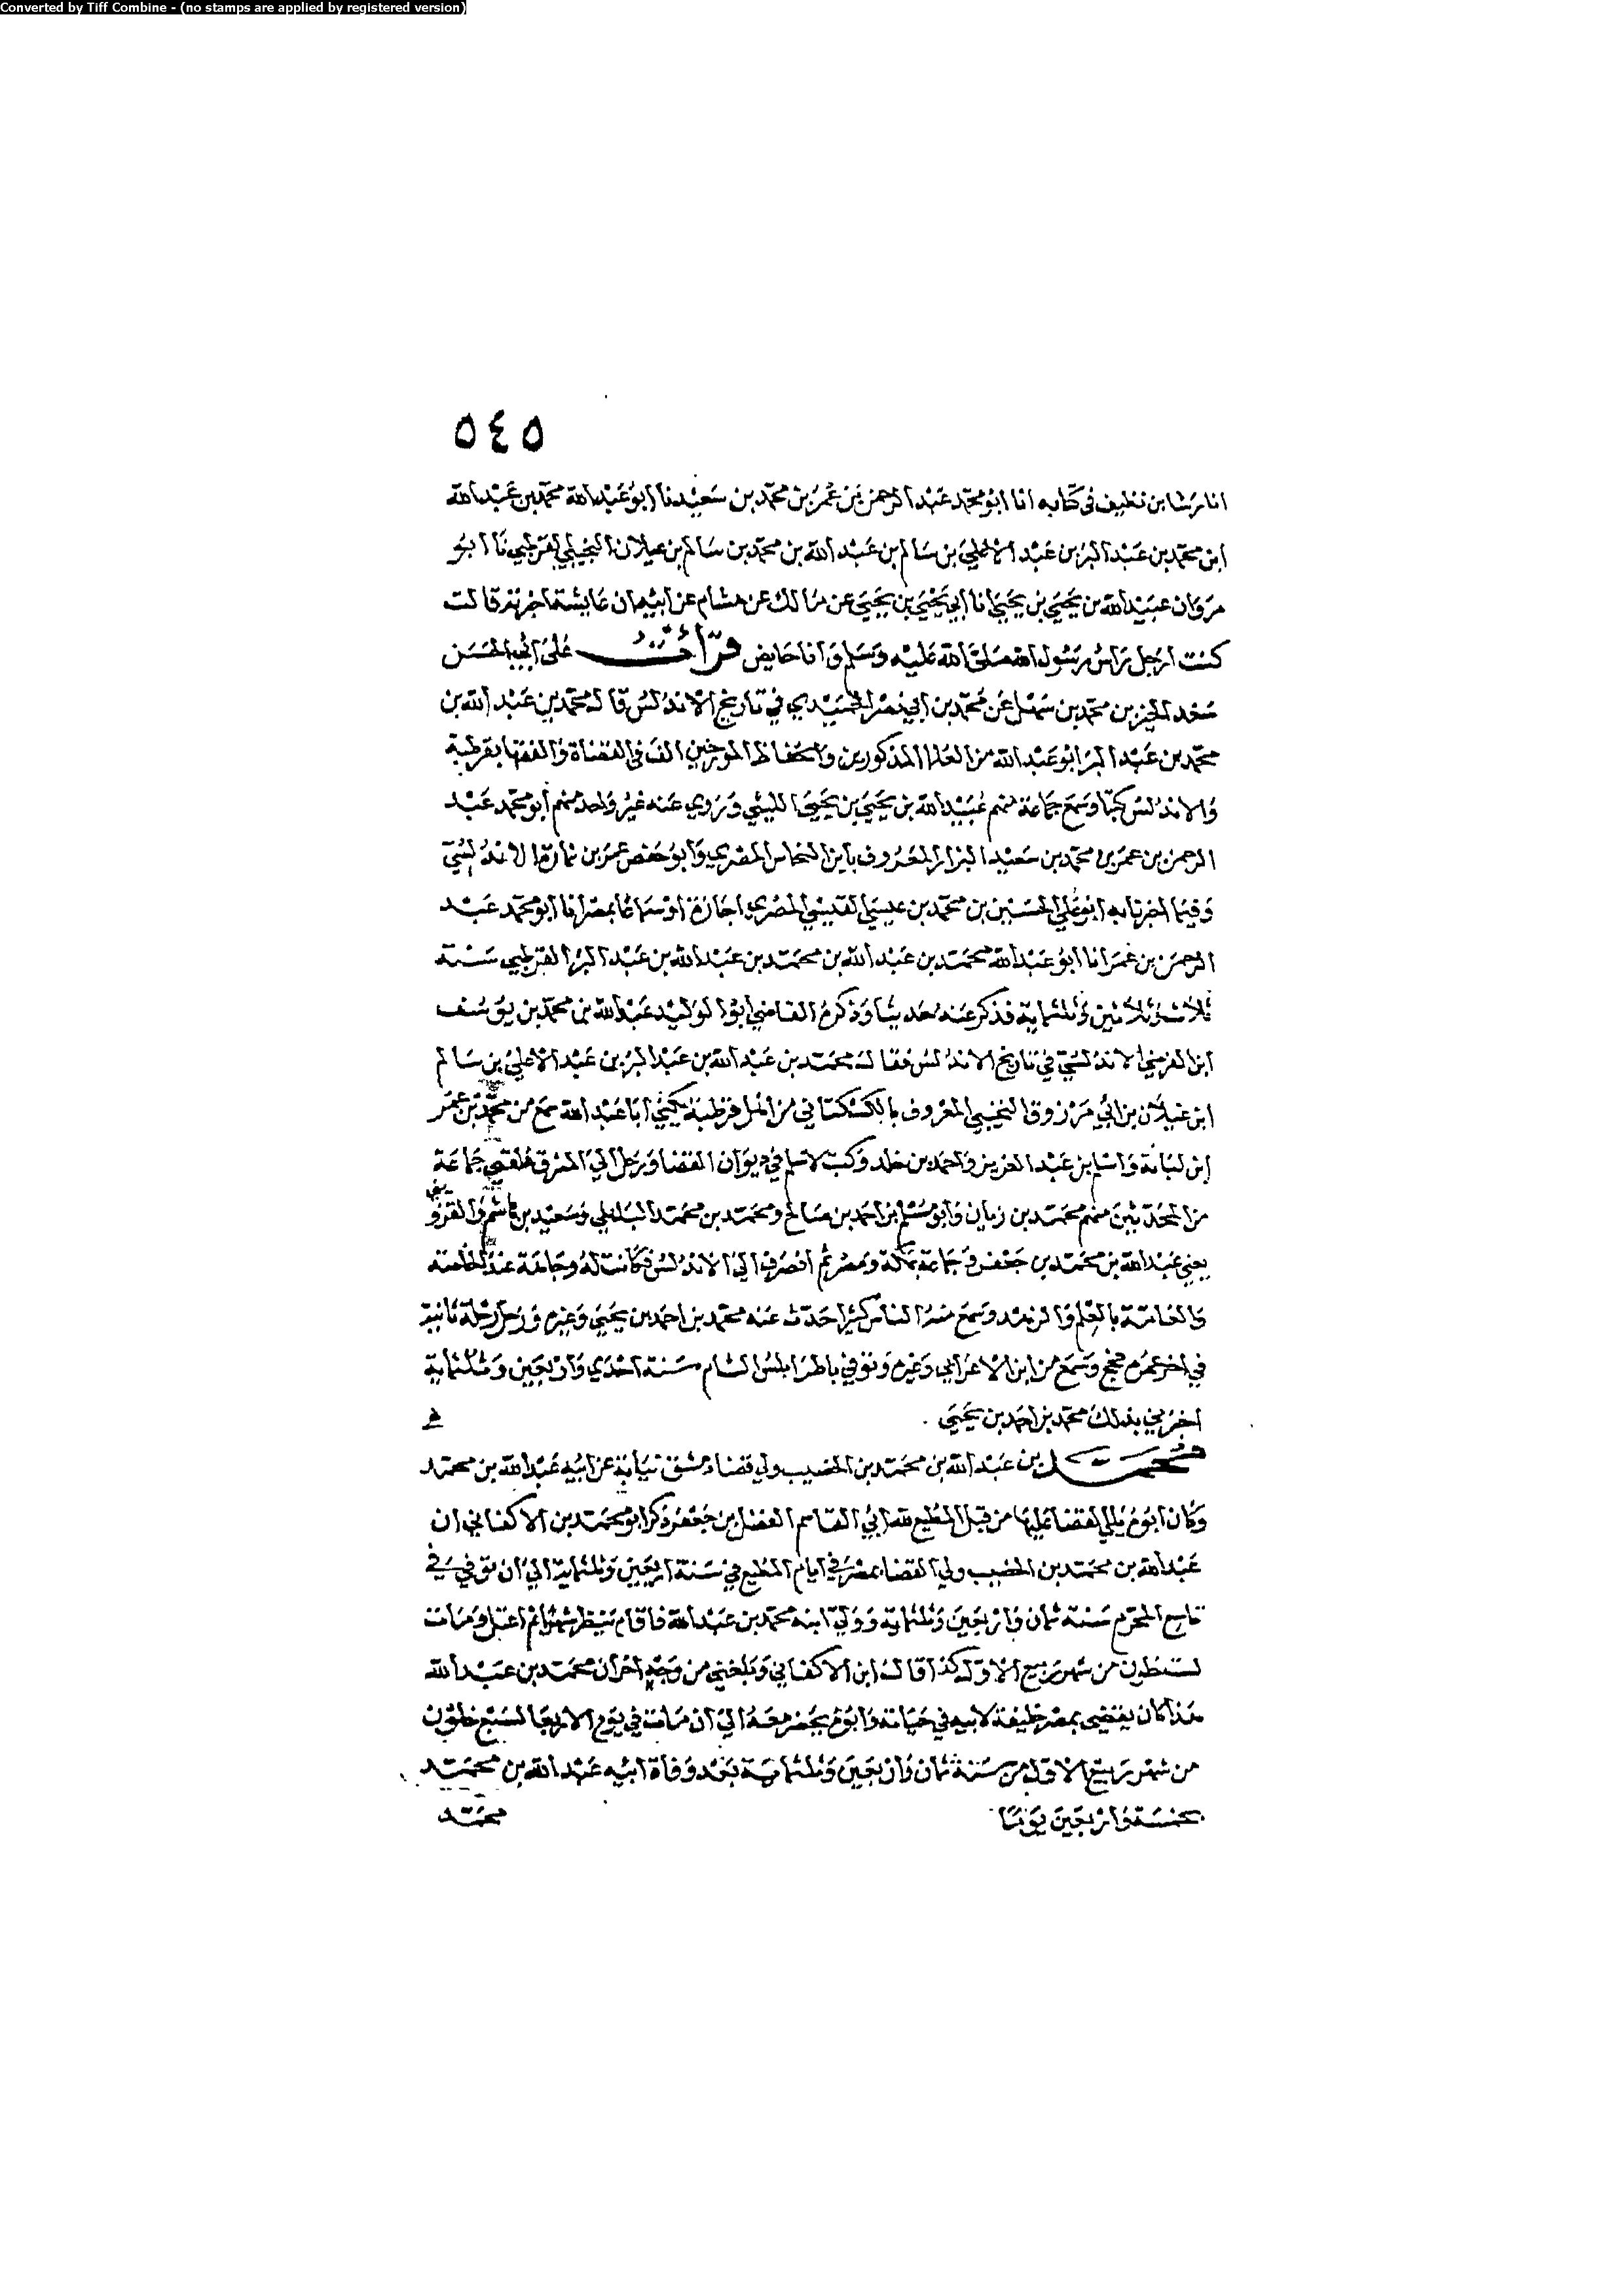 Converted by Tiff Combine - (no stamps are applied by registered version)
٥٤٥
انا رشا بن نظيف في كتابه انا ابو محمد عبد الرحمن بن عمر بن محمد بن سعيد نا ابو عبد الله محمد بن عبد الله
ابن محمد بن عبد البر بن عبد الاعلى بن سالم بن عبد الله بن محمد بن سالم بن عيلان القرطبي نا ابو
مروان عبيد الله بن يحيى بن يحيى انا ابي يحيى بن يحيى عن مالك عن هشام عن ابيه ان عايشة اخبرته قالت
كنت ارجل راس رسول الله صلى الله عليه وسلم وانا حايض قرأت على ابي الحسن
سعد الخير بن محمد بن سهل عن محمد بن ابي نصر الحميدي في تاريخ الاندلس قال محمد بن عبد الله بن
محمد بن عبد البر ابو عبد الله من العلما المذكورين والحفاظ المورخين الف في القضاة والفقها بقرطبة
والاندلس كتبا وسمع جماعة منهم عبيد الله بن يحيى بن يحيى الليثي وروي عنه غير واحد منهم ابو محمد عبد
الرحمن بن عمر بن محمد بن سعيد البزاز المعروف بابن النحاس المصري وابو حفص عمر بن نمارة الاندلسي
وفيما اخبرنا به ابو علي الحسين بن محمد بن عيسى القيسي المصري اجازة او سماعا بمصر انا ابو محمد عبد
الرحمن بن عمر انا ابو عبد الله محمد بن عبد الله بن محمد بن عبد الله بن عبد البر القرطبي سنة
ثلاث وثلاثين وثلثماية فذكر عنه حديثا وذكره القاضي ابو الوليد عبد الله بن محمد بن يوسف
ابن الفرضي الاندلسي في تاريخ الاندلس فقال محمد بن عبد الله بن عبد البر بن عبد الاعلى بن سالم
ابن غيلان بن ابي مرزوق التجيبي المعروف بالكشكيناني من اهل قرطبة يكنى ابا عبد الله سمع من محمد بن عمر
ابن لبابة واسلم بن عبد العزيز واحمد بن خلد وكتب لاسلم في ديوان القضا ورحل الى المشرق فلقي جماعة
من المحدثين منهم محمد بن زبان وابو مسلم بن احمد بن صالح ومحمد بن محمد الباهلي وسعيد بن هاشم والقزويني
يعني عبد الله بن محمد بن جعفر في جماعة بمكة ومصر ثم انصرف الى الاندلس فكانت له وجاهة عند الخاصة
والعامة بالعلم والزهد وسمع منه الناس كثيرا حدث عنه محمد بن احمد بن يحيى وغيره ورحل رحلة ثانية
في اخر عمره فحج وسمع من ابن الاعرابي وغيره وتوفي باطرابلس الشام سنة احدي واربعين وثلثماية
اخبرني بذلك محمد بن احمد بن يحيى
محمد بن عبد الله بن محمد بن الخصيب ولي قضاء دمشق نيابة عن ابيه عبد الله بن محمد
وكان ابوه يلي القضا عليها من قبل المطيع لله ابي القاسم الفضل بن جعفر ذكر ابو محمد بن الاكفاني ان
عبد الله بن محمد بن الخصيب ولي القضاء بمصر في ايام المطيع في سنة اربعين وثلثماية الى ان توفي في
تاسع المحرم سنة ثمان واربعين وثلثماية وولي ابنه محمد بن عبد الله فاقام ينظر شهرا ثم اعتل ومات
لست خلون من شهر ربيع الاول كذا قال ابن الاكفاني وبلغني من وجه اخر ان محمد بن عبد الله
هذا كان يقضي بمصر خليفة لابيه في حياته وابوه يحضر معه الى ان مات في يوم الاربعا لسبع خلون
من شهر ربيع الاول من سنة ثمان واربعين وثلثماية بعد وفاة ابيه عبد الله بن محمد
بخمسة واربعين يوما
محمد